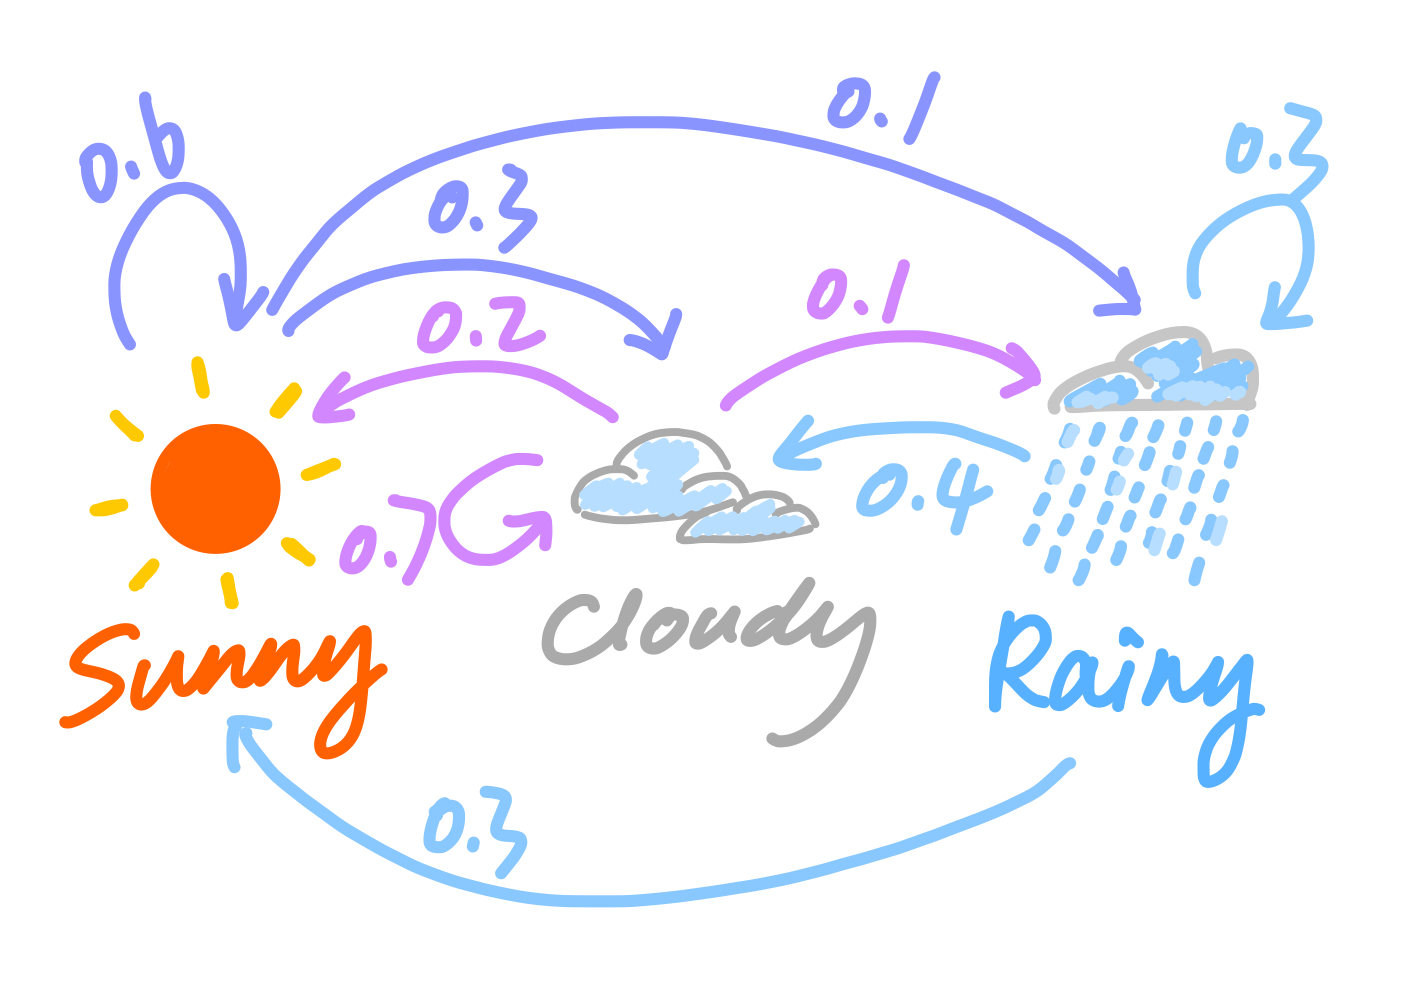 0.1
0.6
0.3
0.3
0.2
0.1
0.4
0.7
Sunny
Cloudy
Rainy
0.3